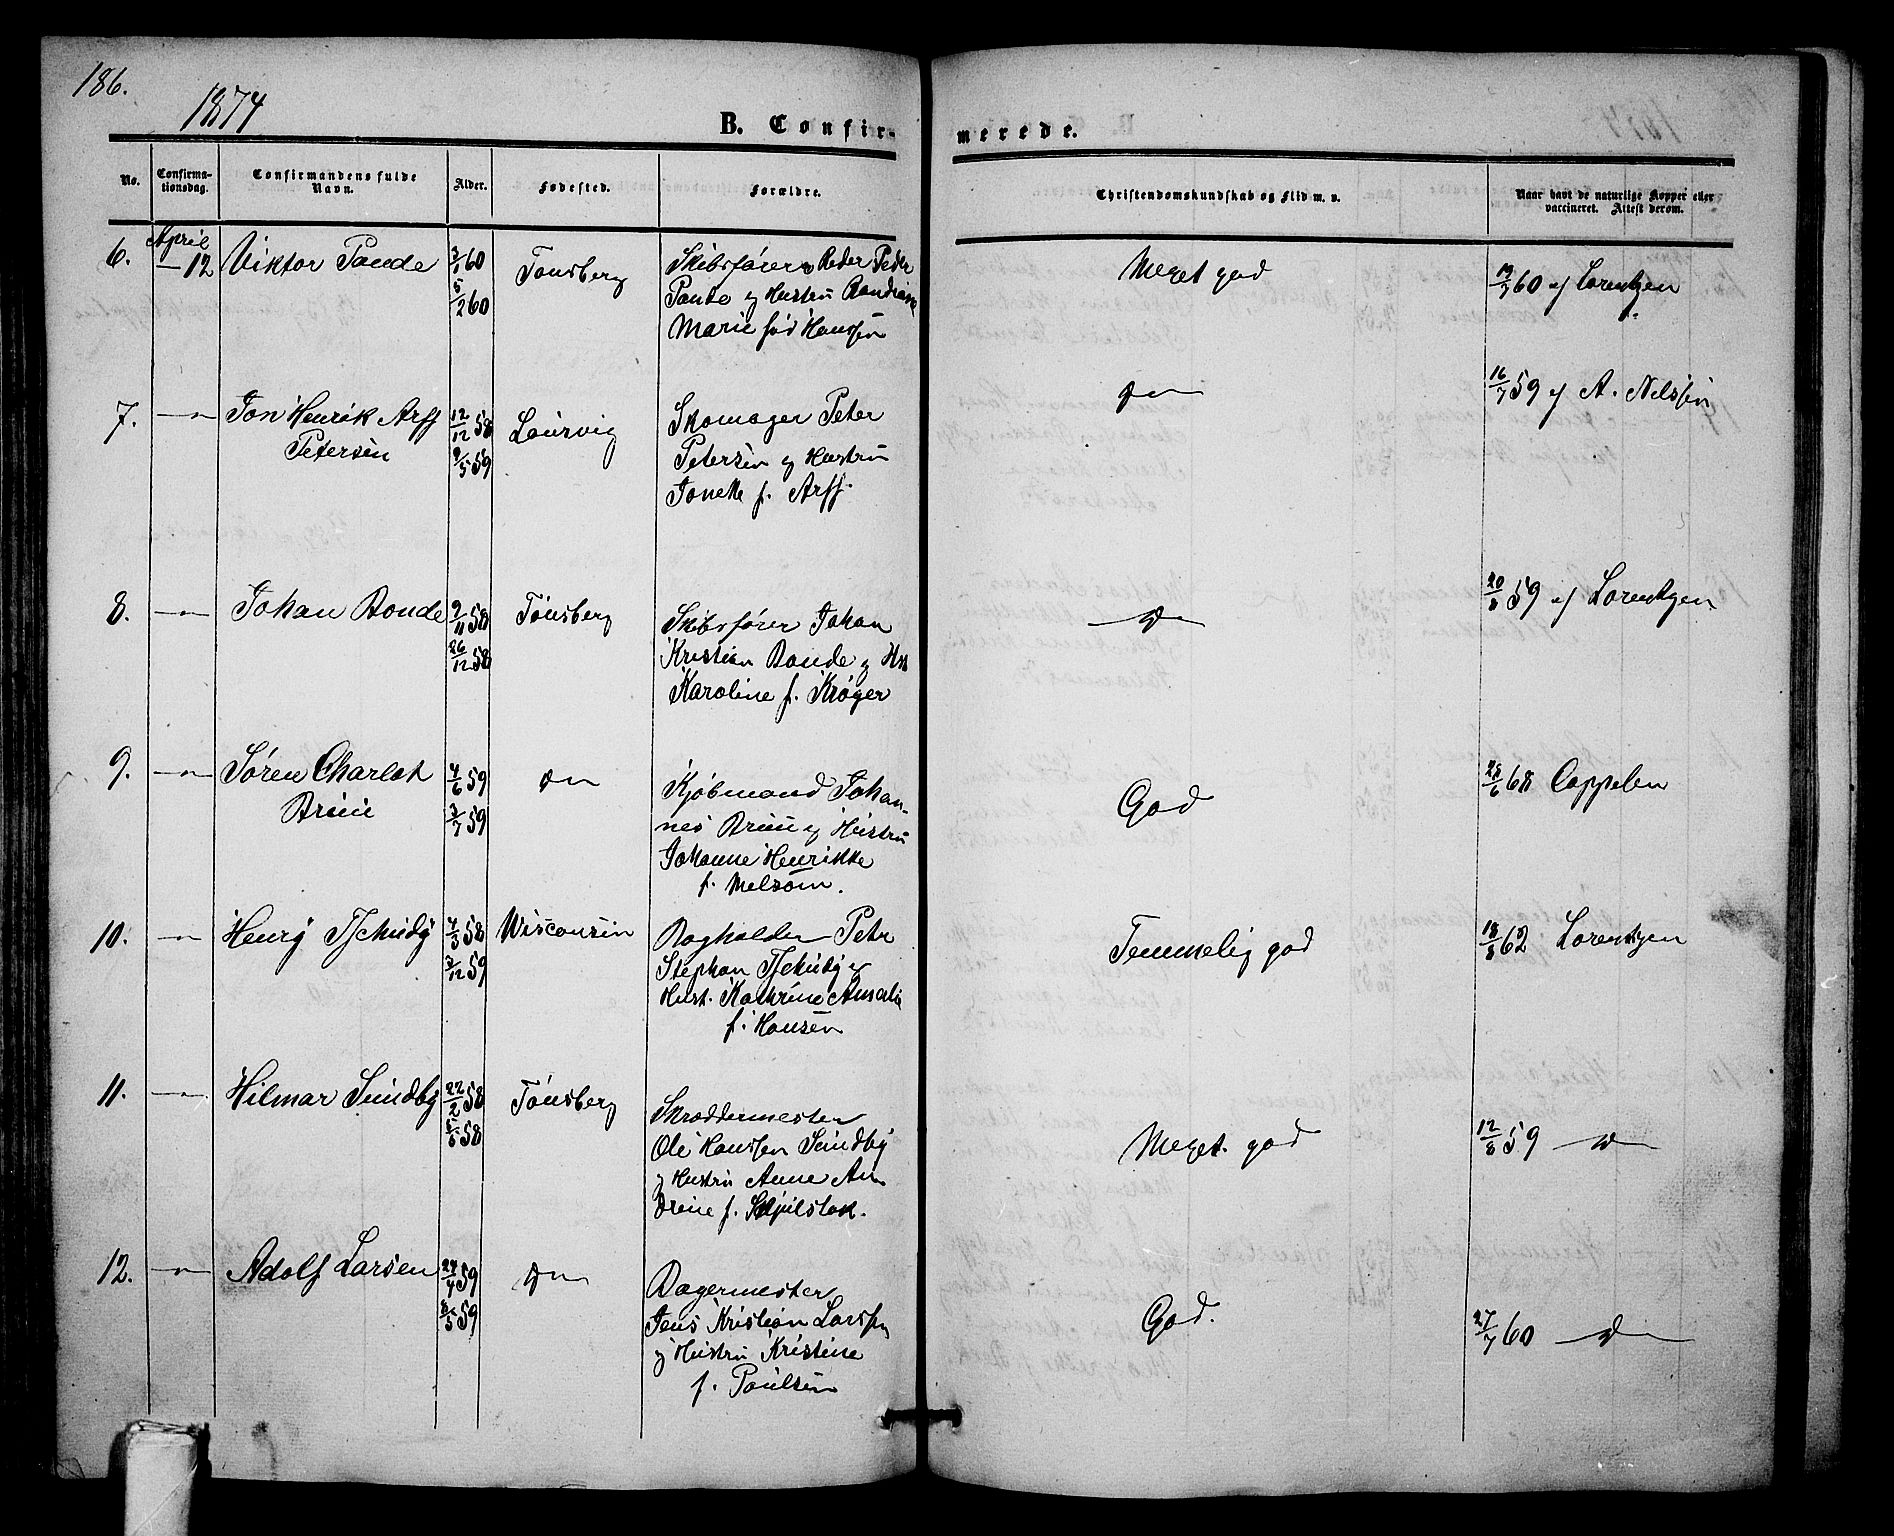 186.
1874
B. Confir-
merede.
No.
Confirma-
tionsdag.
Confirmandens fulde
Navn.
Alder.
Fødested.
Forældre.
Christendomskundskab og Flid m. v.
Naar havt de naturlige Kopper eller
vaccineret. Attest derom.
6.
April
— 12
Viktor Paude
3/1 60
5/2 60
Tønsberg
Skibsfører Peder
Paude og Hustru
Marie født Hanssen
Meget god
19/7 60 af Lorentzen
7.
—"—
Jon Henrik Arff
Petersen
12/12 58
9/5 59
Laurvig
Skomager Peter
Petersen og Hustru
Jonette f. Arff.
Do
16/7 59 af A. Nilssen
8.
—"—
Johan Bonde
9/11 58
26/12 58
Tønsberg
Skibsfører Johan
Kristian Bonde og Hst
Karoline f. Krøger
—"—
20/8 59 af Lorentzen
9.
—"—
Søren Charlot
Bruu
4/6 59
3/7 59
Do
Kjøbmand Johan-
nes Bruu og Hustru
Johanne Henrikke
f. Melsom.
God
28/6 68 Cappelen
10.
—"—
Henry Tschudy
4/3 58
3/12 59
Wisconsin
Bogholder Petr
Stephan Tschudy og
Hust. Kathrine Amalie
f. Hansen
Temmelig god
18/8 62 Lorentzen
11.
—"—
Hilmar Sundby
22/2 58
5/5 58
Tønsberg
Skræddermester
Ole Hanssen Sundby
og Hustru Anne An
drine f. Skjilstak.
Meget god
12/8 59 —"—
12.
—"—
Adolf Larsen
24/4 59
8/5 59
Do
Bagermester
Jens Kristian Larssen
og Hustru Kristine
f. Paulsen
God.
27/7 60 —"—